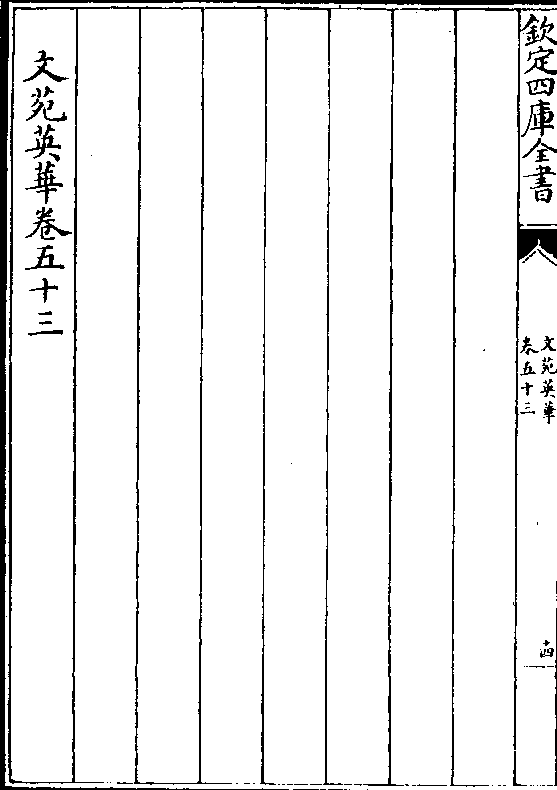 欽定四庫全書
文苑英華
卷五十三
十四
文苑英華卷五十三